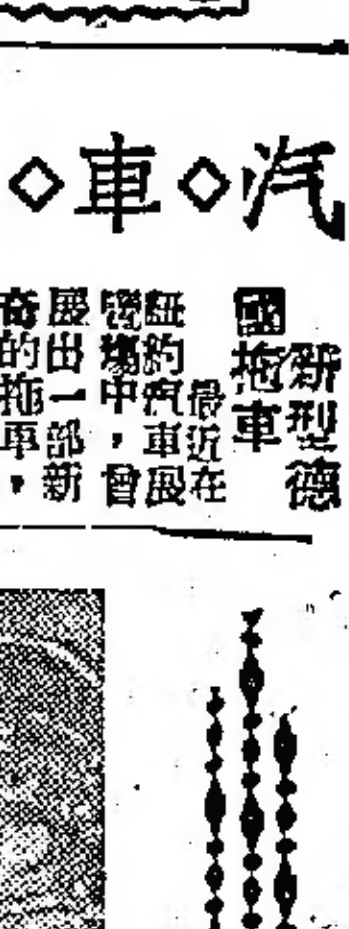 汽◇車◇
新型德
國拖車
最近在
紐約汽車展
覽場中，曾
展出一部新
奇的拖車，